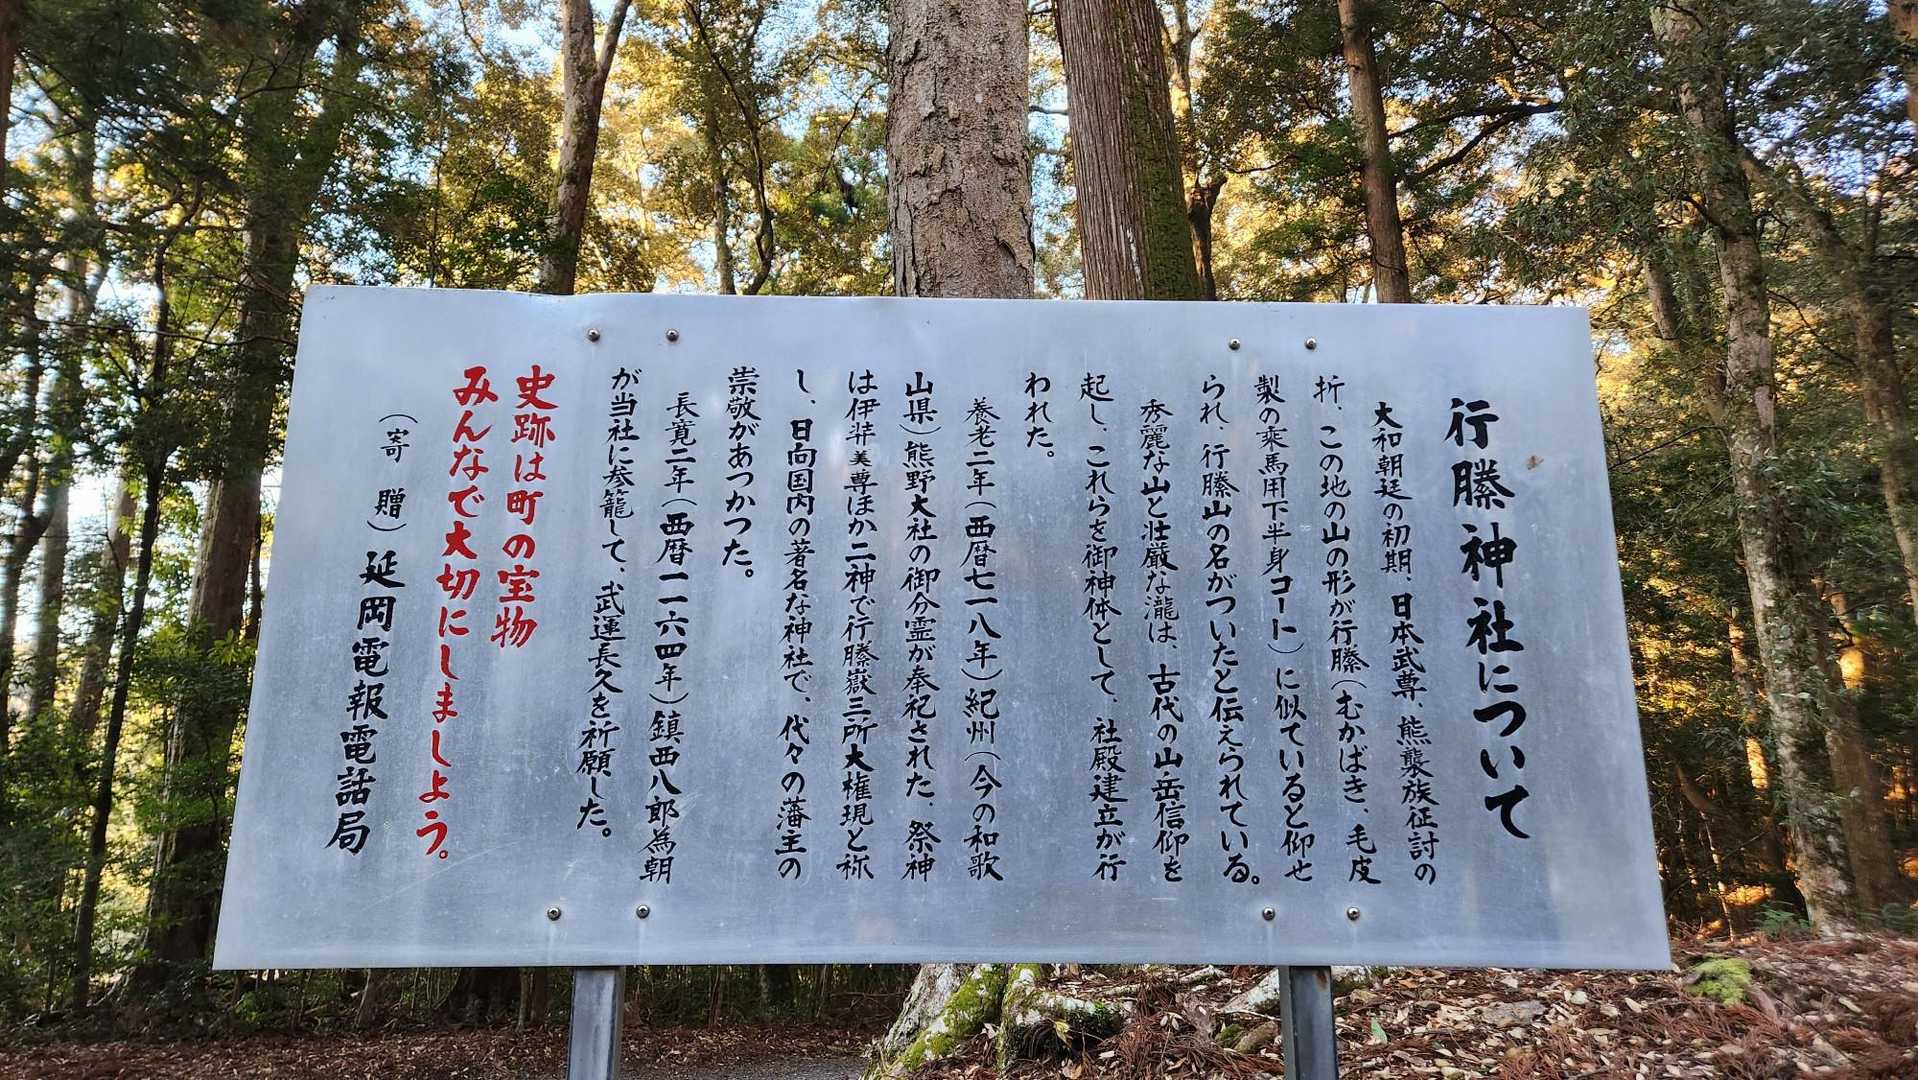 行縢神社について
大和朝廷の初期、日本武尊、熊襲族征討の
折、この地の山の形が行縢（むかばき、毛皮
製の乗馬用下半身コート）に似ていると仰せ
られ、行縢山の名がついたと伝えられている。
秀麗な山と壮厳な瀧は、古代の山岳信仰を
起し、これらを御神体として、社殿建立が行
われた。
養老二年（西暦七一八年）紀州（今の和歌
山県）熊野大社の御分霊が奉祀された、祭神
は伊弉美尊ほか二神で行縢嶽三所大権現と称
し、日向国内の著名な神社で、代々の藩主の
崇敬があつかつた。
長寛二年（西暦一一六四年）鎮西八郎為朝
が当社に参籠して、武運長久を祈願した。
史跡は町の宝物
みんなで大切にしましよう。
（寄贈）延岡電報電話局